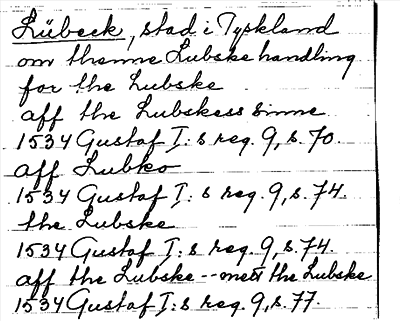 Lübeck, stad i Tyskland
om thenne Lubske handling
for the Lubske
aff the Lubskess sinne
1534 Gustaf I:s reg. 9, s. 70.
aff Lubko
1534 Gustaf I:s reg. 9, s. 74.
the Lubske
1534 Gustaf I:s reg. 9, s. 74.
aff the Lubske -- mett the Lubske
1534 Gustaf I:s reg. 9, s. 77.